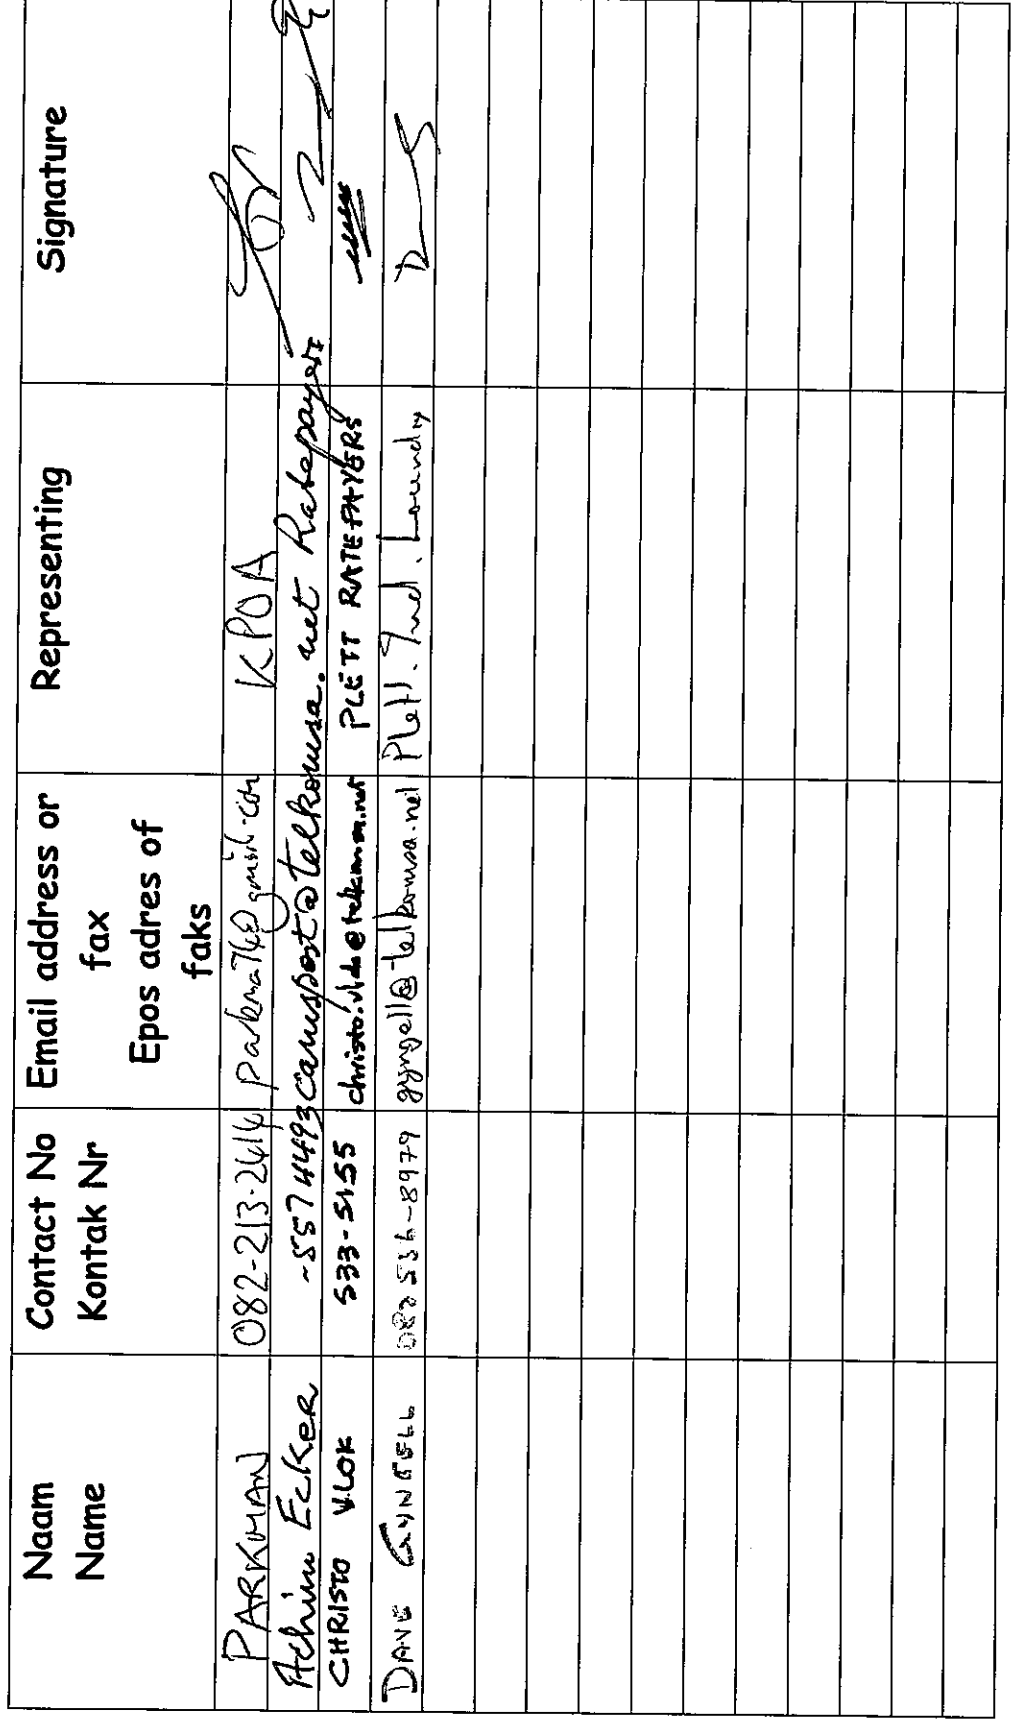 Naam
Name
Contact No
Kontak Nr
Email address or
fax
Epos adres of
faks
Representing
Signature
PARKMAN 082-213-2414 parkma74@gmail.com KPOA
Achim Ecker 5574493 campost@telkomsa.net Ratepayers
CHRISTO VLOK 533-5155 PLETT RATEPAYERS
DAVE GYNGELL gyngell@telkomsa.net Plett. Ind. Laundry